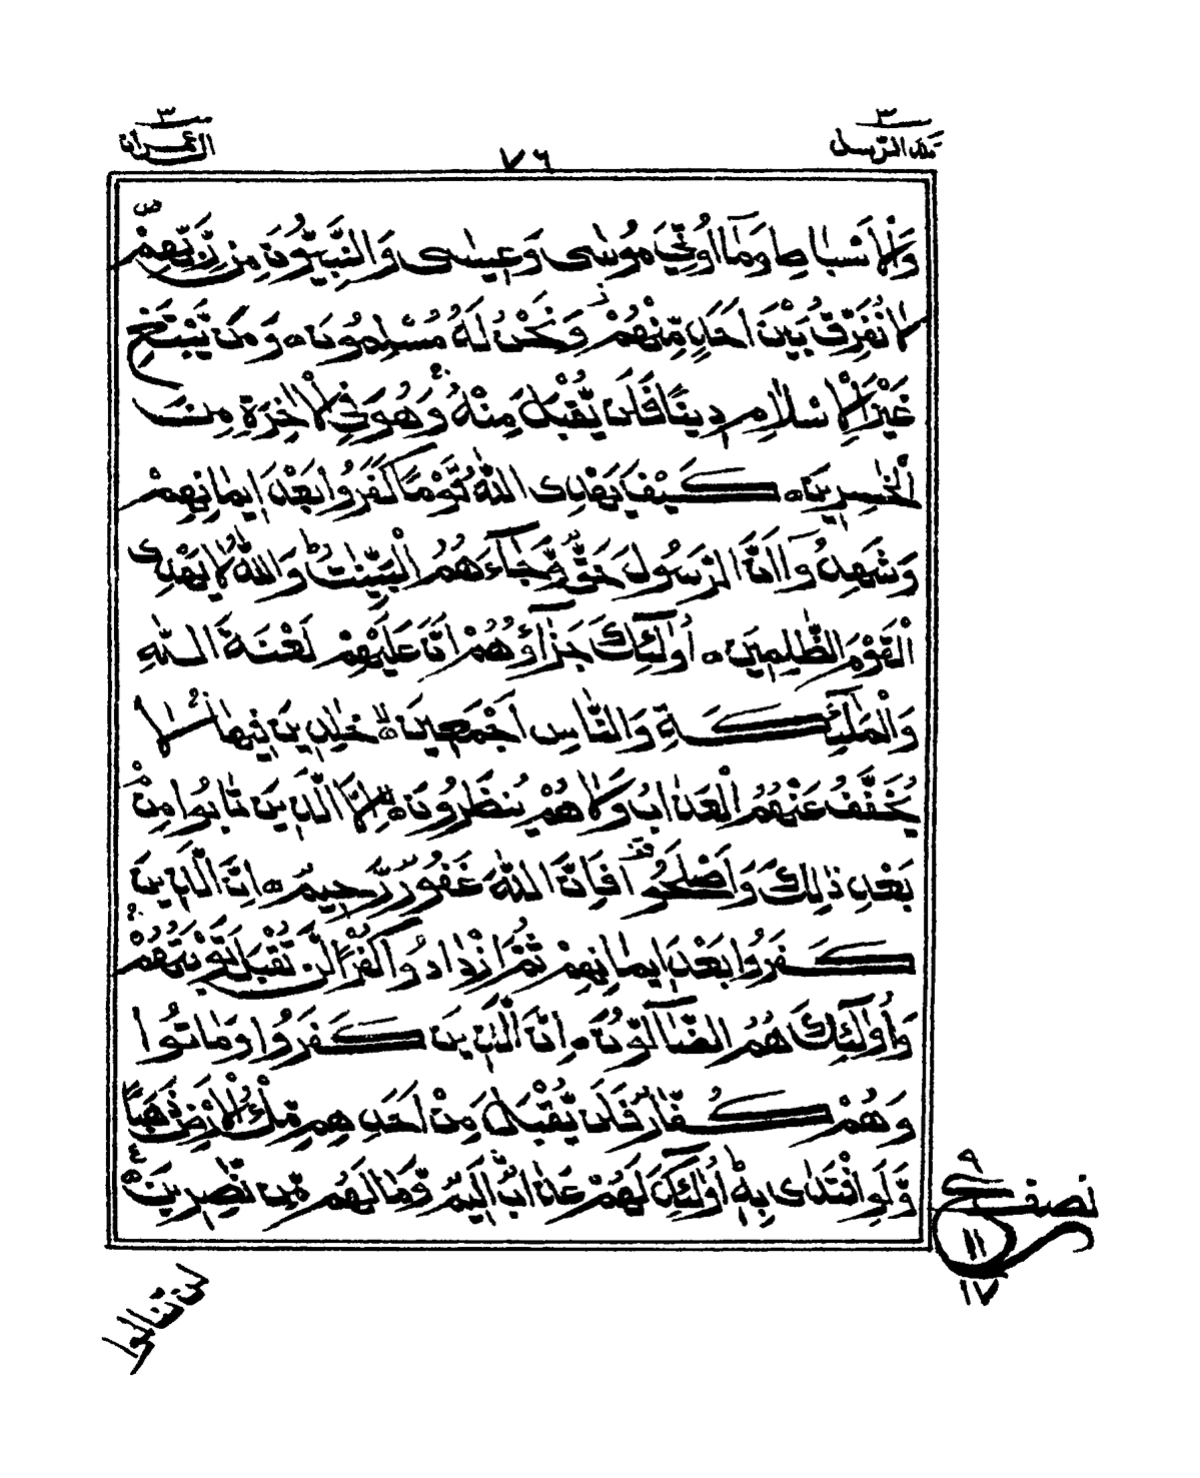 ٣
تلك الرسل
٧٦
٣
ال عمران
وَالْاَسْبَاطِ وَمَآ اُوْتِيَ مُوْسٰى وَعِيْسٰى وَالنَّبِيُّوْنَ مِنْ رَّبِّهِمْ ص
لَا نُفَرِّقُ بَيْنَ اَحَدٍ مِّنْهُمْ ز وَنَحْنُ لَهٗ مُسْلِمُوْنَ ٥ وَمَنْ يَّبْتَغِ
غَيْرَ الْاِسْلَامِ دِيْنًا فَلَنْ يُّقْبَلَ مِنْهُ ج وَهُوَ فِي الْاٰخِرَةِ مِنَ
الْخٰسِرِيْنَ ٥ كَيْفَ يَهْدِى اللّٰهُ قَوْمًا كَفَرُوْا بَعْدَ اِيْمَانِهِمْ
وَشَهِدُوْٓا اَنَّ الرَّسُوْلَ حَقٌّ وَّجَآءَهُمُ الْبَيِّنٰتُ ط وَاللّٰهُ لَا يَهْدِى
الْقَوْمَ الظّٰلِمِيْنَ ٥ اُولٰٓئِكَ جَزَآؤُهُمْ اَنَّ عَلَيْهِمْ لَعْنَةَ اللّٰهِ
وَالْمَلٰٓئِكَةِ وَالنَّاسِ اَجْمَعِيْنَ ٥ لا خٰلِدِيْنَ فِيْهَا ج لَا
يُخَفَّفُ عَنْهُمُ الْعَذَابُ وَلَا هُمْ يُنْظَرُوْنَ ٥ لا اِلَّا الَّذِيْنَ تَابُوْا مِنْۢ
بَعْدِ ذٰلِكَ وَاَصْلَحُوْا قف فَاِنَّ اللّٰهَ غَفُوْرٌ رَّحِيْمٌ ٥ اِنَّ الَّذِيْنَ
كَفَرُوْا بَعْدَ اِيْمَانِهِمْ ثُمَّ ازْدَادُوْا كُفْرًا لَّنْ تُقْبَلَ تَوْبَتُهُمْ ج
وَاُولٰٓئِكَ هُمُ الضَّآلُّوْنَ ٥ اِنَّ الَّذِيْنَ كَفَرُوْا وَمَاتُوْا
وَهُمْ كُفَّارٌ فَلَنْ يُّقْبَلَ مِنْ اَحَدِهِمْ مِّلْءُ الْاَرْضِ ذَهَبًا
وَّلَوِ افْتَدٰى بِهٖ ط اُولٰٓئِكَ لَهُمْ عَذَابٌ اَلِيْمٌ وَّمَا لَهُمْ مِّنْ نّٰصِرِيْنَ ٥ ع
نصف
٩
ع
١١
١٧
لن تنالوا